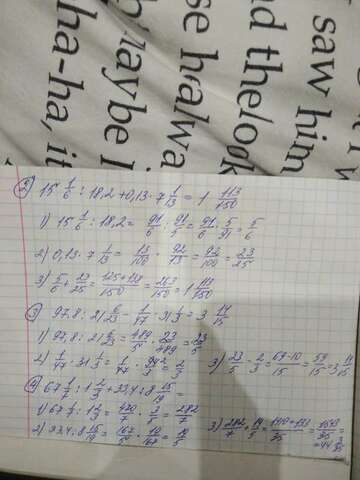 I saw him
and the look
maybe I
se he alwa
ha-ha, it
2) 15 1/6 : 18,2 + 0,13 · 7 1/13 = 1 113/150
1) 15 1/6 : 18,2 = 91/6 : 91/5 = 91/6 · 5/91 = 5/6
2) 0,13 · 7 1/13 = 13/100 · 92/13 = 92/100 = 23/25
3) 5/6 + 23/25 = 125+138/150 = 263/150 = 1 113/150
3) 97,8 : 21 6/23 - 1/47 · 31 1/3 = 3 14/15
1) 97,8 : 21 6/23 = 489/5 · 23/489 = 23/5
2) 1/47 · 31 1/3 = 1/47 · 94/3 = 2/3
3) 23/5 - 2/3 = 69-10/15 = 59/15 = 3 14/15
4) 67 1/7 : 1 2/3 + 33,4 : 8 15/19 =
1) 67 1/7 : 1 2/3 = 470/7 · 3/5 = 282/7
2) 33,4 : 8 15/19 = 167/5 · 19/167 = 19/5
3) 282/7 + 19/5 = 1410+133/35 = 1543/35 = 44 3/35